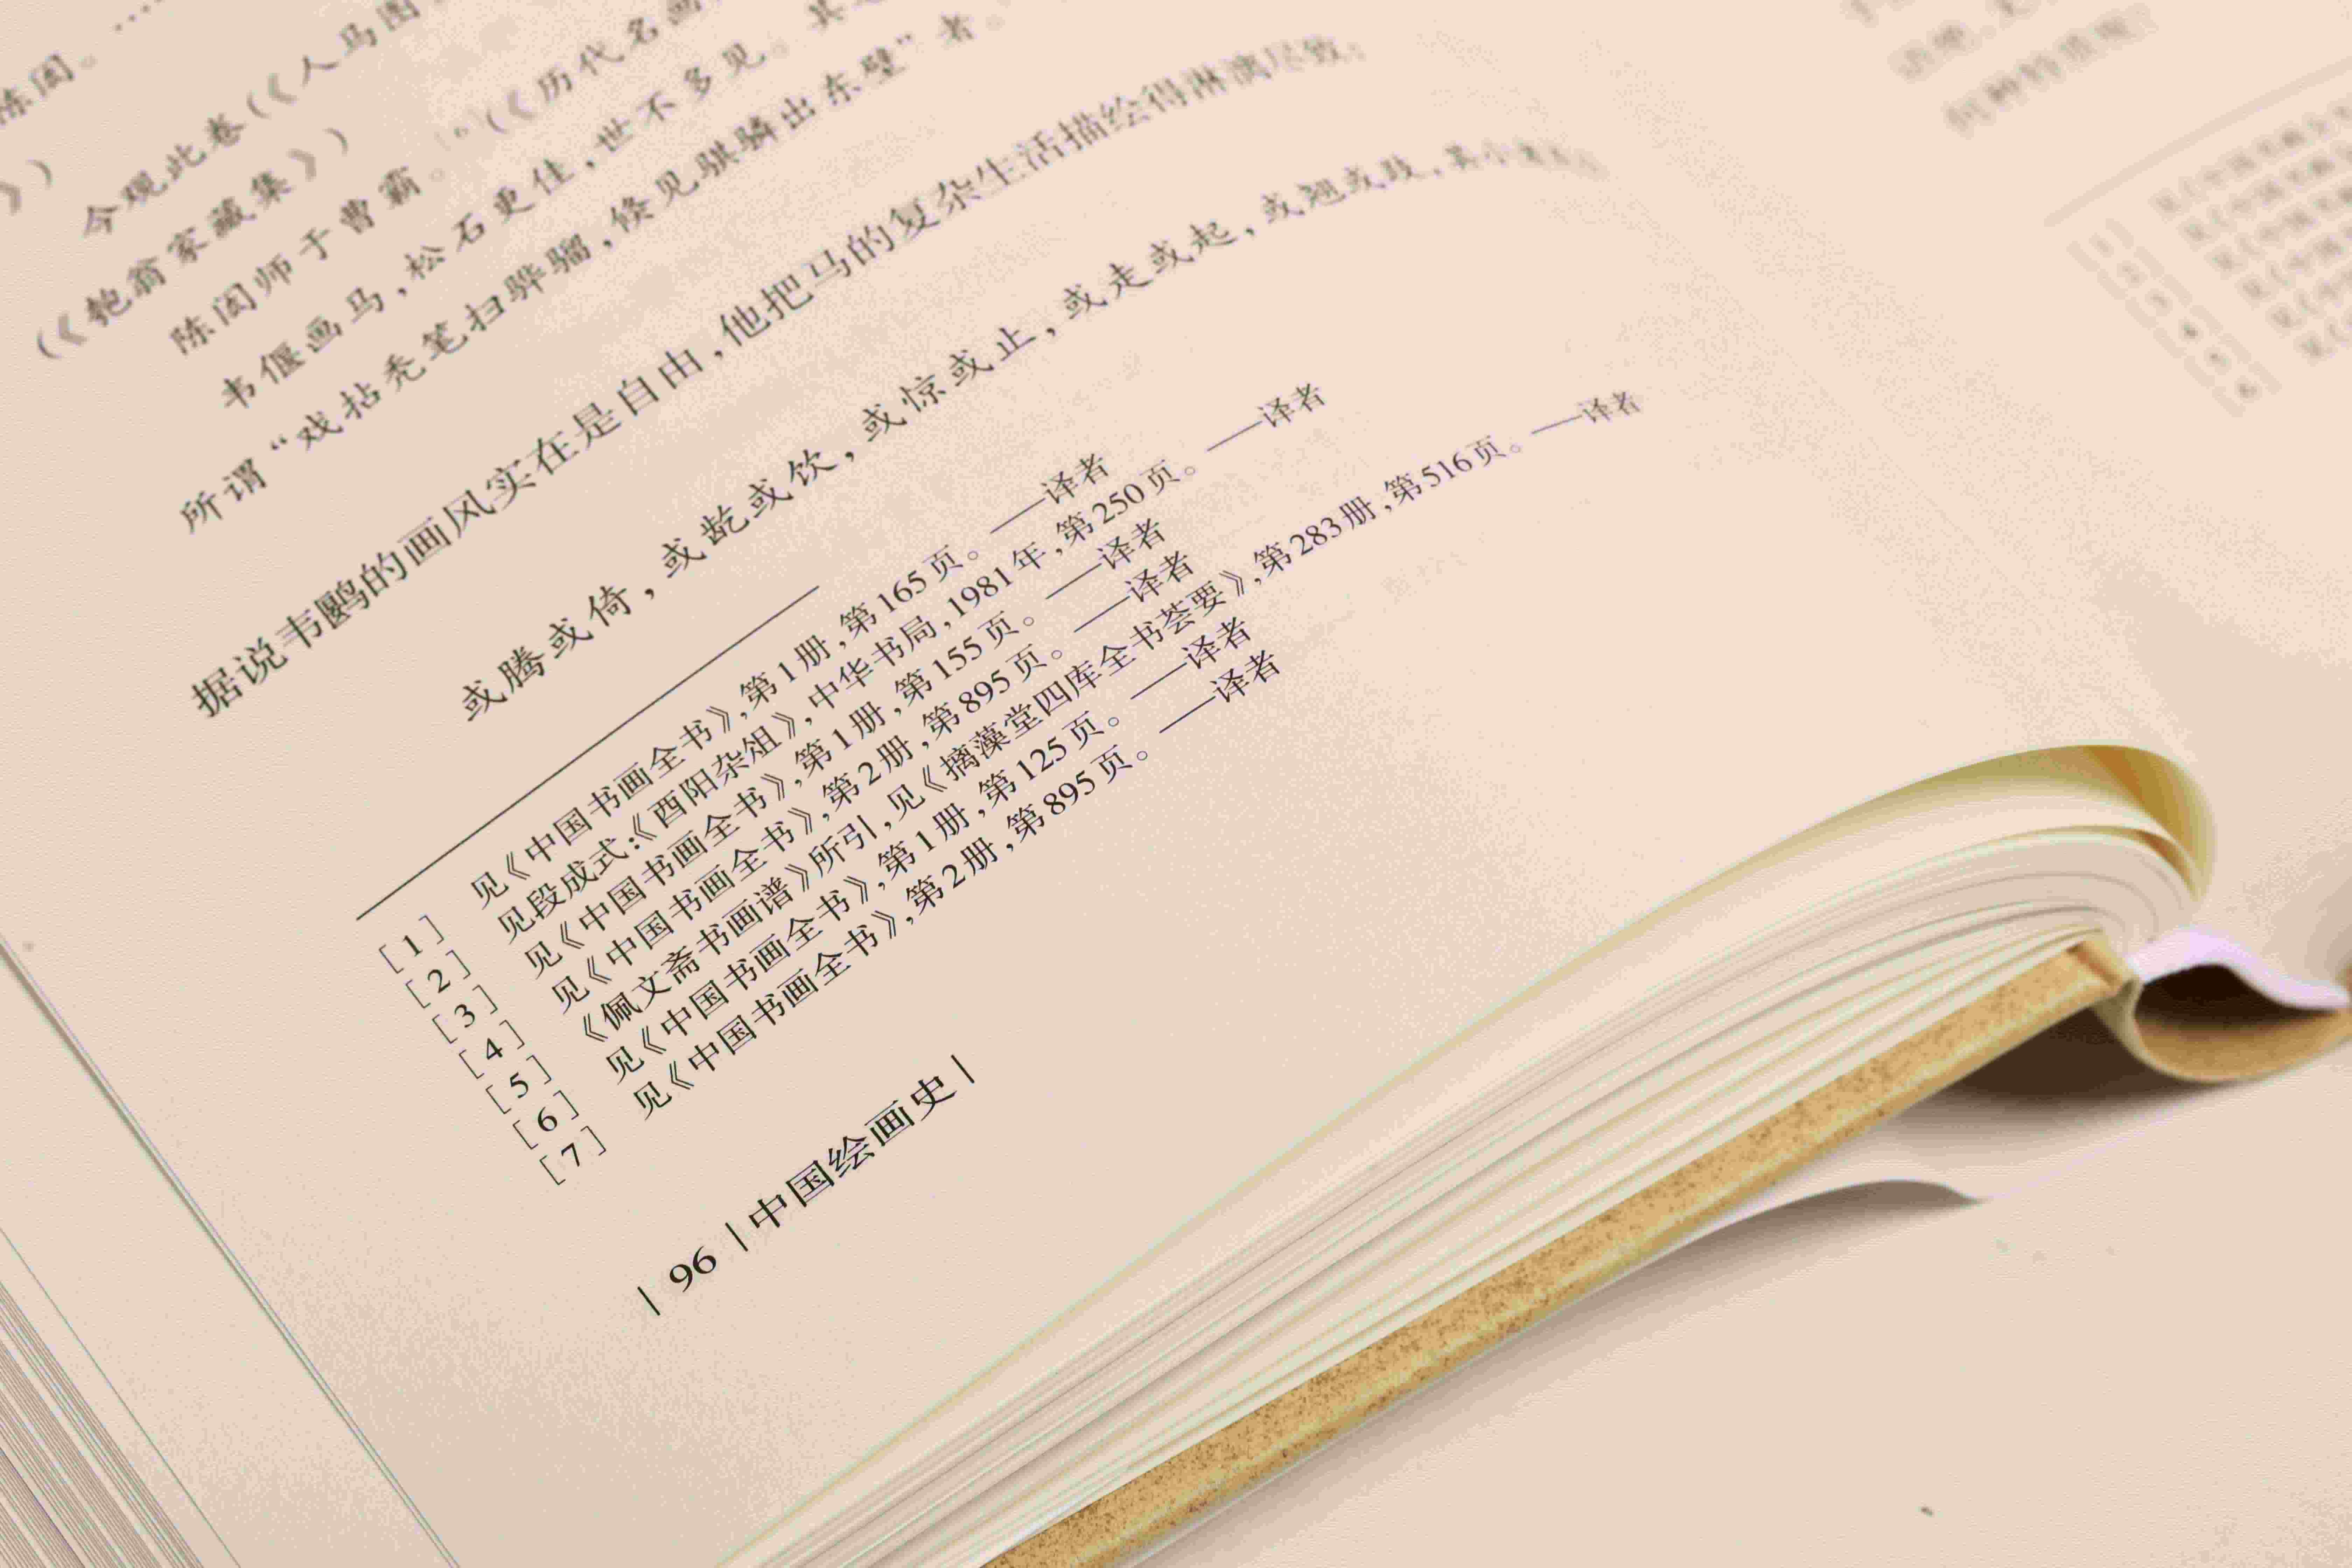 陈闳。……
》）
今观此卷（《人马图
（《匏翁家藏集》）
陈闳师于曹霸。[6]（《历代名画
韦偃画马，松石更佳，世不多见。其
所谓“戏拈秃笔扫骅骝，倏见骐驎出东壁”者。
据说韦鶠的画风实在是自由，他把马的复杂生活描绘得淋漓尽致：
或腾或倚，或龁或饮，或惊或止，或走或起，或翘或跂，其小者
[1] 见《中国书画全书》，第1册，第165页。——译者
[2] 见段成式：《酉阳杂俎》，中华书局，1981年，第250页。——译者
[3] 见《中国书画全书》，第1册，第155页。——译者
[4] 见《中国书画全书》，第2册，第895页。——译者
[5] 《佩文斋书画谱》所引，见《摛藻堂四库全书荟要》，第283册，第516页。——译者
[6] 见《中国书画全书》，第1册，第125页。——译者
[7] 见《中国书画全书》，第2册，第895页。——译者
| 96 | 中国绘画史 |
何种特质呢？